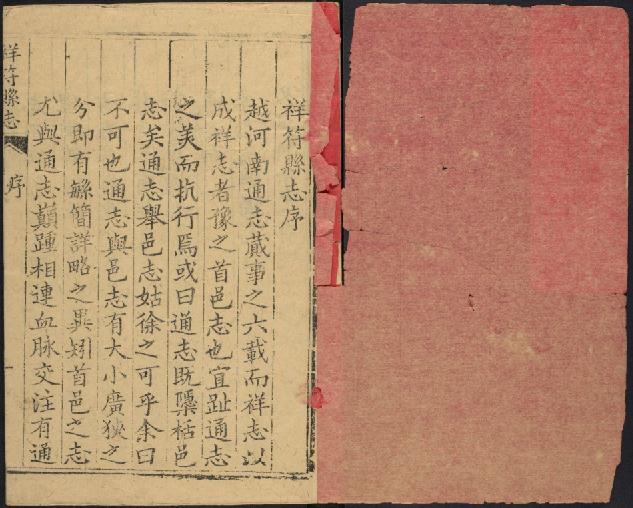 祥符縣志序
越河南通志蕆事之六載而祥志以
成祥志者豫之首邑志也宜趾通志
之美而抗行焉或曰通志既櫽栝邑
志矣通志舉邑志姑徐之可乎余曰
不可也通志與邑志有大小廣狹之
分即有緐簡詳略之異矧首邑之志
尤與通志巔踵相連血脉交注有通
祥符縣志
序